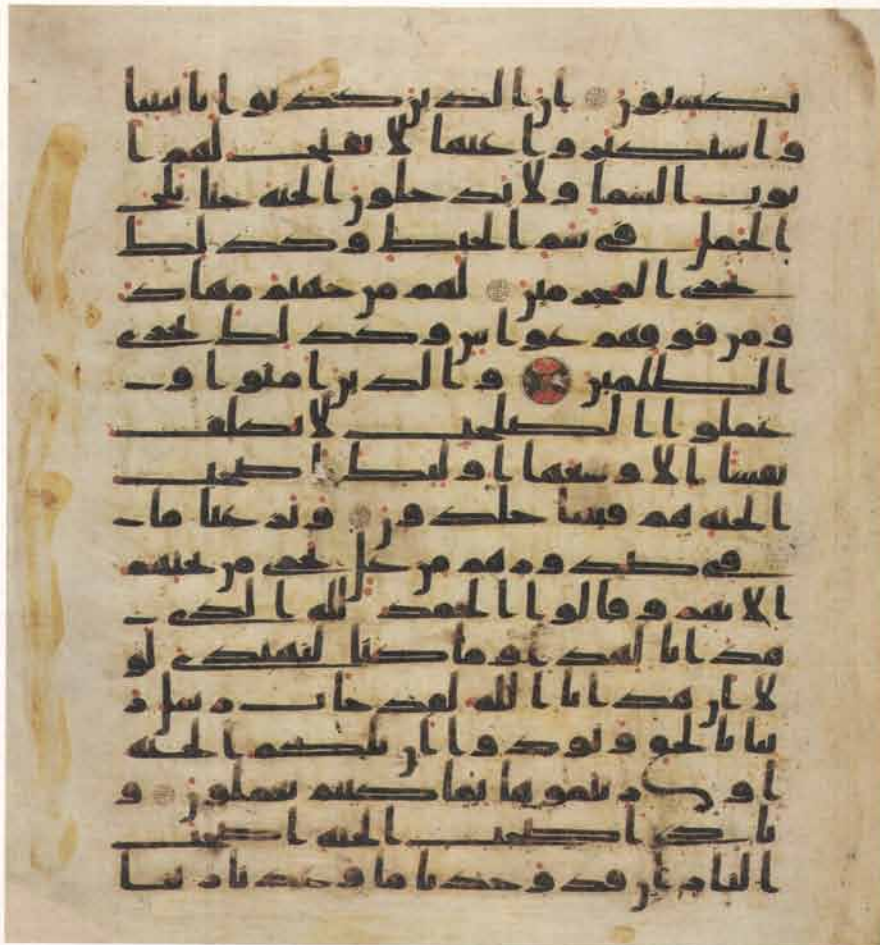 تكسبون ان الذين كذبوا باىتنا
واستكبروا عنها لا تفتح لهم ا
بوب السما ولا يدخلون الجنه حتا يلج
الجمل في سم الخيط وكذلك
نجزي المجرمين لهم من جهنم مهاد
ومن فوقهم غواش وكذلك نجزي
الظلمين والذين امنوا و
عملوا الصلحت لا نكلف
نفسا الا وسعها اولىك اصحب
الجنه هم فيها خلدون ونزعنا ما
في صدورهم من غل تجري من تحتهم
الانهر وقالوا الحمد لله الذي
هدانا لهذا وما كنا لنهتدي لو
لا ان هدانا الله لقد جات رسل ر
بنا بالحق ونودوا ان تلكم الجنه
اورثتموها بما كنتم تعملون و
نادى اصحب الجنه اصحب
النار ان قد وجدنا ما وعدنا ربنا